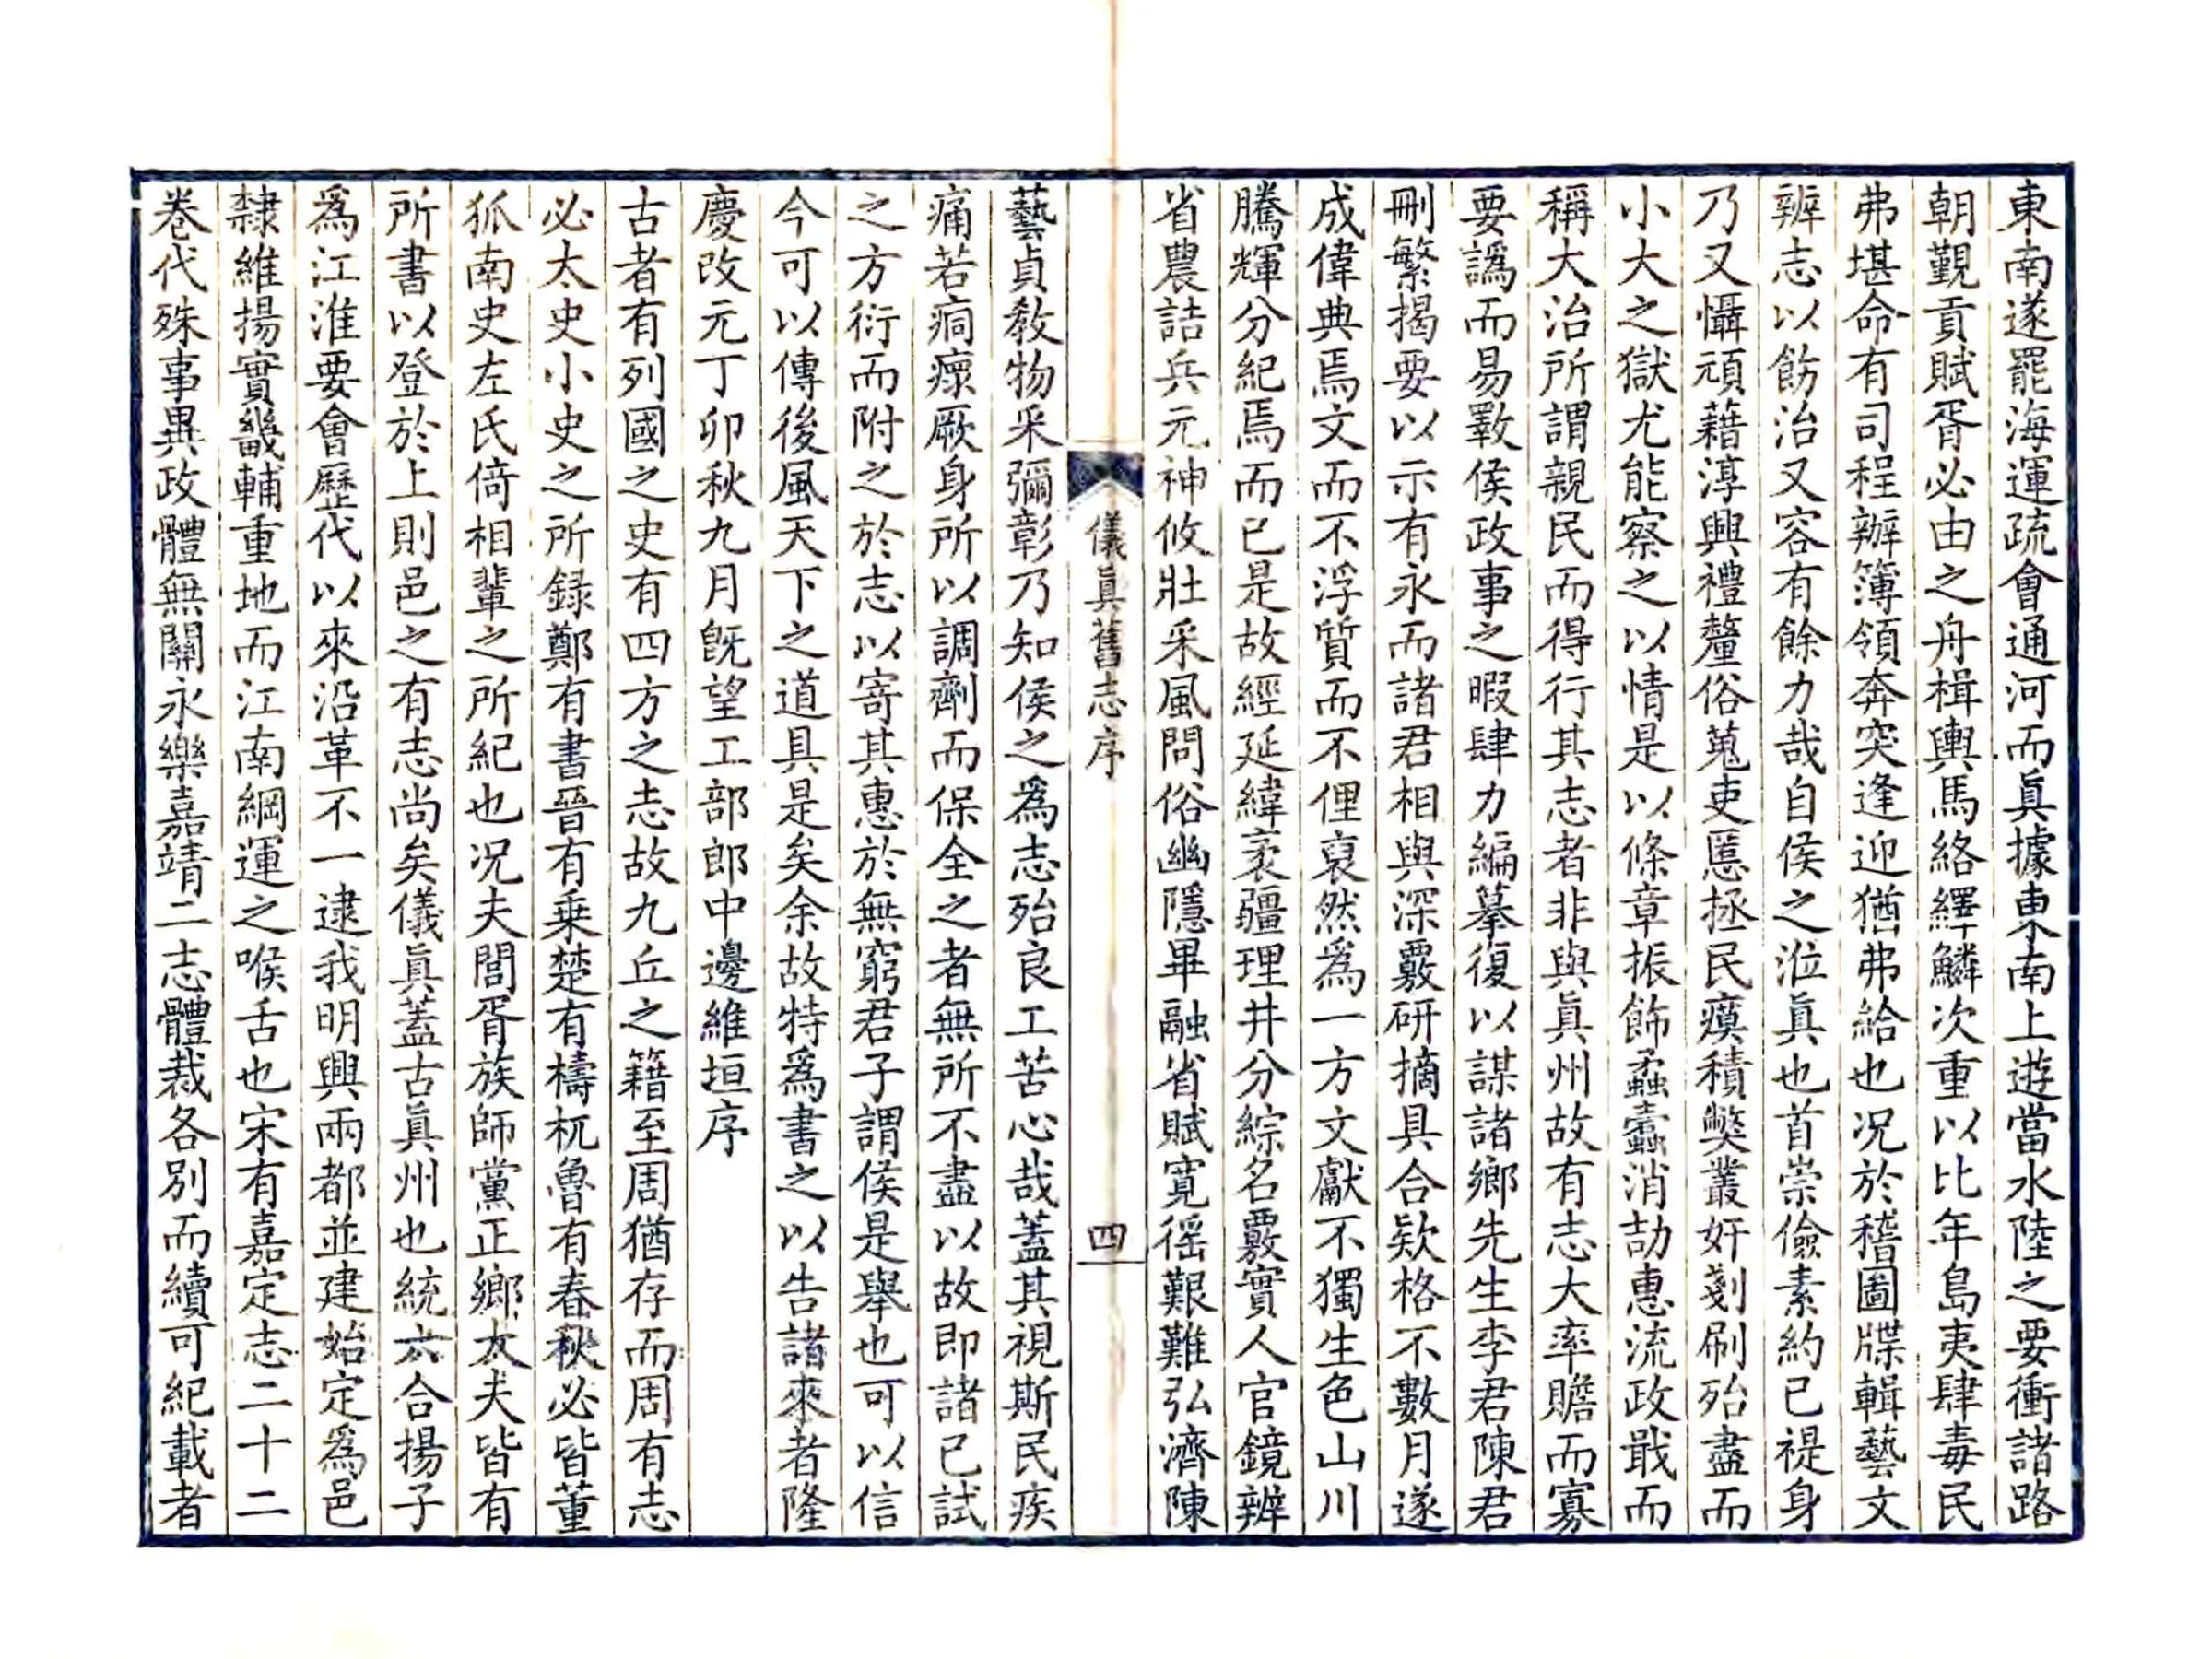 東南遂罷海運疏會通河而眞據東南上遊當水陸之要衝諸路
朝覲貢賦胥必由之舟楫輿馬絡繹鱗次重以比年島夷肆毒民
弗堪命有司程辦簿領奔突逢迎猶弗給也况於稽圖牒輯藝文
辨志以飭治又容有餘力哉自侯之涖眞也首崇儉素約已禔身
乃又懾頑藉淳興禮釐俗蒐吏慝拯民瘼積獘叢奸剗刷殆盡而
小大之獄尤能察之以情是以條章振飾蝨蠹消劼惠流政戢而
稱大治所謂親民而得行其志者非與眞州故有志大率贍而寡
要譌而易斁侯政事之暇肆力編摹復以謀諸鄉先生李君陳君
刪繁揭要以示有永而諸君相與深覈研摘具合欵格不數月遂
成偉典焉文而不浮質而不俚裒然為一方文獻不獨生色山川
騰輝分紀焉而已是故經延緯袤疆理井分綜名覈實人官鏡辨
省農詰兵元神攸壯采風問俗幽隱畢融省賦寬徭艱難弘濟陳
儀眞舊志序
四
藝貞教物采彌彰乃知侯之為志殆良工苦心哉蓋其視斯民疾
痛若痌瘝厥身所以調劑而保全之者無所不盡以故即諸已試
之方衍而附之於志以寄其惠於無窮君子謂侯是舉也可以信
今可以傳後風天下之道具是矣余故特為書之以告諸來者隆
慶改元丁卯秋九月旣望工部郎中邊維垣序
古者有列國之史有四方之志故九丘之籍至周猶存而周有志
必太史小史之所録鄭有書晉有乗楚有檮杌魯有春秋必皆董
狐南史左氏倚相輩之所紀也况夫閭胥族師黨正鄉大夫皆有
所書以登於上則邑之有志尚矣儀眞蓋古眞州也統六合揚子
為江淮要會歷代以來沿革不一逮我明興兩都並建始定為邑
隸維揚實畿輔重地而江南綱運之喉舌也宋有嘉定志二十二
卷代殊事異政體無關永樂嘉靖二志體裁各別而續可紀載者